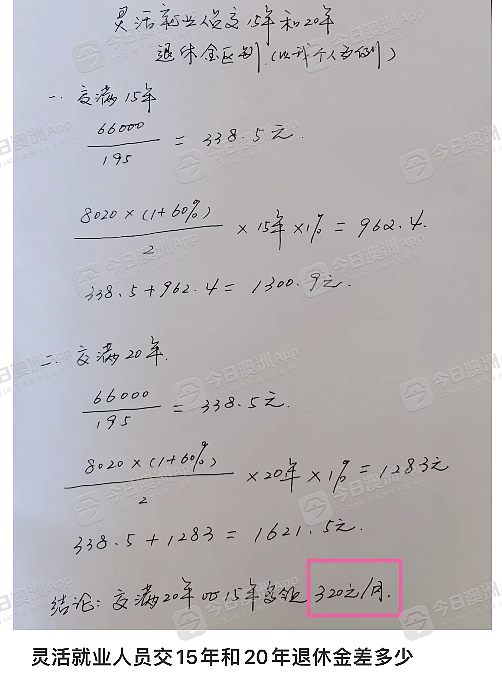 灵活就业人员交15年和20年
退休金区别.(以我个人为例)
一. 交满15年
66000
195
= 338.5元.
8020×(1+60%)
2
×15年×1% = 962.4.
338.5+962.4= 1300.9元.
二. 交满20年.
66000
195
=338.5元.
8020×(1+60%)
2
×20年×1%=1283元
338.5+1283=1621.5元.
结论: 交满20年比15年多领 320元/月.
灵活就业人员交15年和20年退休金差多少
今日澳洲App